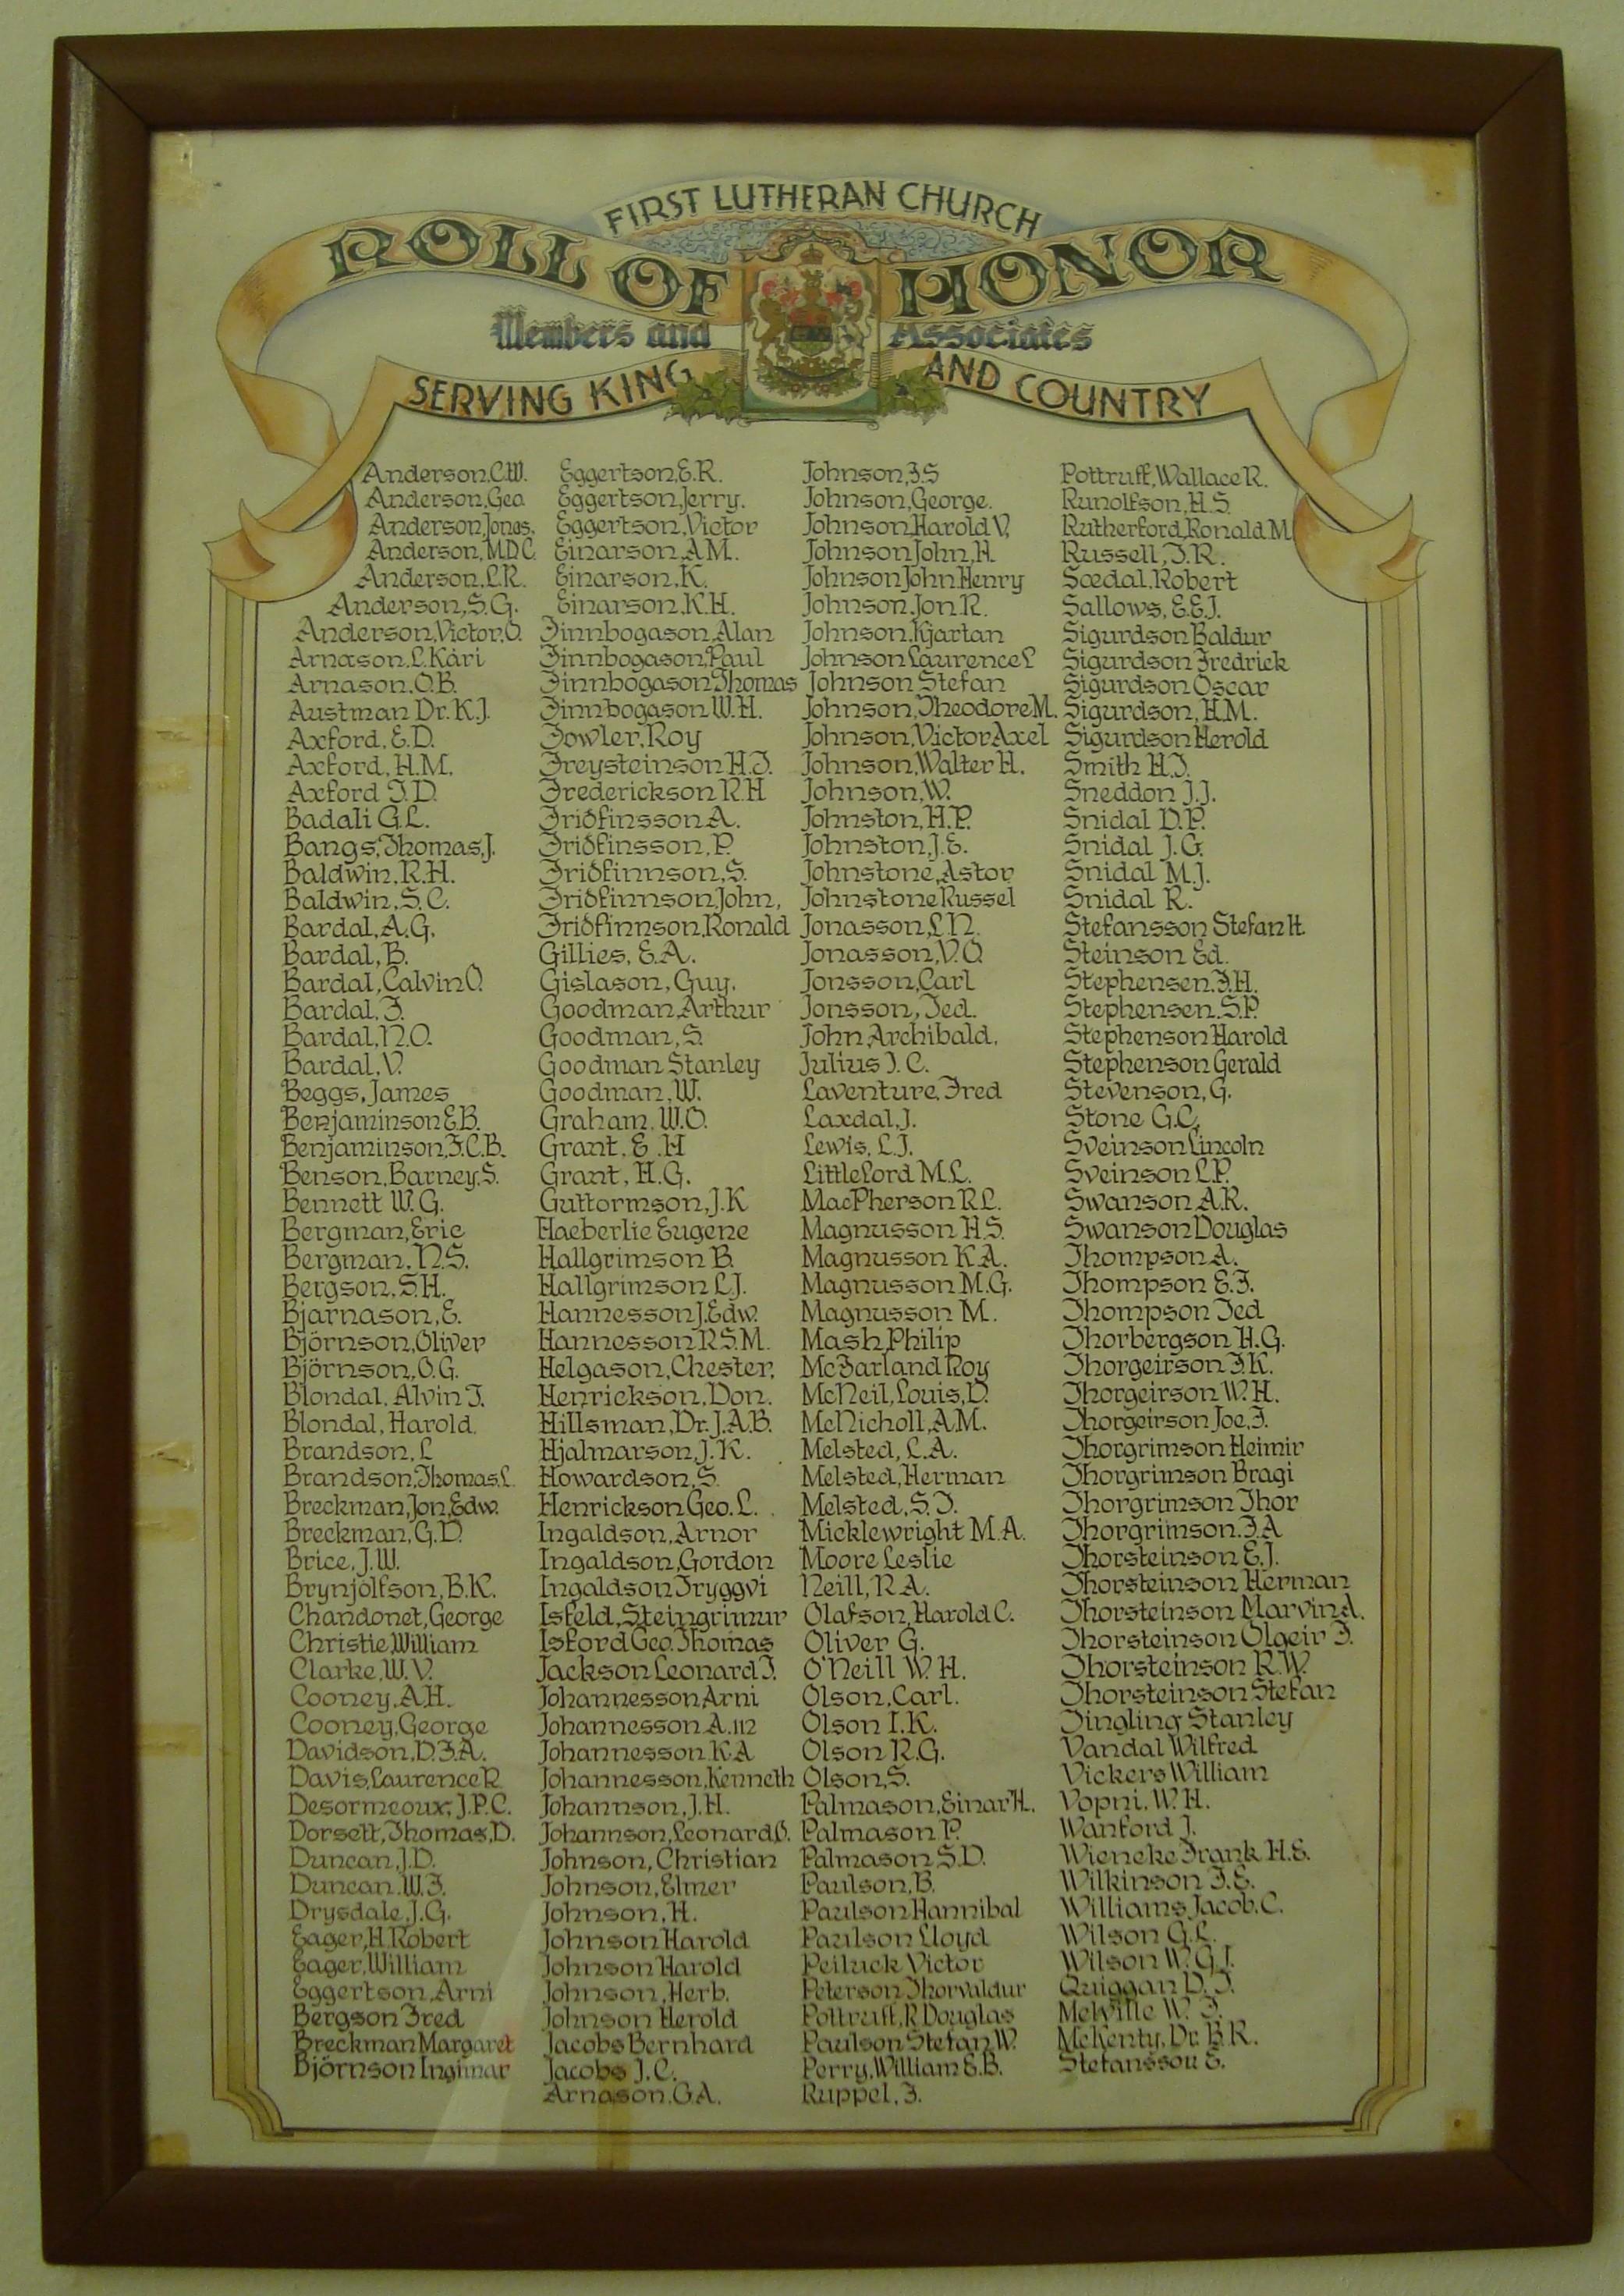 FIRST LUTHERAN CHURCH
ROLL OF HONOR
Members and Associates
SERVING KING AND COUNTRY
Anderson, C.W.
Anderson, Geo
Anderson, Jones.
Anderson, M.D.C.
Anderson, L.R.
Anderson, S.G.
Anderson, Victor, O.
Arnason, L. Kári
Arnason, O.B.
Austman Dr. K.J.
Axford, E.D.
Axford, H.M.
Axford T.D.
Badali G.L.
Bangs, Thomas, J.
Baldwin, R.H.
Baldwin, S.C.
Bardal, A.G.
Bardal, B.
Bardal, Calvin O.
Bardal, F.
Bardal, N.O.
Bardal, V.
Beggs, James
Benjaminson E.B.
Benjaminson, F.C.B.
Benson, Barney, S.
Bennett W.G.
Bergman, Eric
Bergman, N.S.
Bergson, S.H.
Bjarnason, E.
Björnson, Oliver
Björnson, O.G.
Blondal, Alvin T.
Blondal, Harold.
Brandson, L
Brandson, Thomas, L.
Breckman, Jon, Edw.
Breckman, G.D.
Brice, J.W.
Brynjolfson, B.K.
Chandonet, George
Christie, William
Clarke, W.V.
Cooney, A.H.
Cooney, George
Davidson, D.F.A.
Davis, Laurence R.
Desormeoux, J.P.C.
Dorsett, Thomas, D.
Duncan, J.D.
Duncan, W.F.
Drysdale, J.G.
Eager, H. Robert
Eager, William
Eggertson, Arni
Bergson Fred
Breckman Margaret
Björnson Ingimar
Eggertson, E.R.
Eggertson, Jerry.
Eggertson, Victor
Einarson, A.M.
Einarson, K.
Einarson, K.H.
Finnbogason, Alan
Finnbogason, Paul
Finnbogason Thomas
Finnbogason W.H.
Fowler, Roy
Freysteinson H.T.
Frederickson R.H
Friðfinsson A.
Friðfinsson, P.
Friðfinnson, S.
Friðfinnson, John,
Friðfinnson, Ronald
Gillies, E.A.
Gislason, Guy.
Goodman, Arthur
Goodman, S.
Goodman Stanley
Goodman, W.
Graham, W.O.
Grant, E.H
Grant, H.G.
Guttormson, J.K
Haeberlie Eugene
Hallgrimson B.
Hallgrimson L.J.
Hannesson J. Edw.
Hannesson R.S.M.
Helgason, Chester,
Henrickson, Don.
Hillsman, Dr. J.A.B.
Hjalmarson, J.K.
Howardson, S.
Henrickson Geo. L.
Ingaldson, Arnor
Ingaldson, Gordon
Ingaldson Tryggvi
Isfeld, Steingrimur
Isford Geo. Thomas
Jackson Leonard T.
Johannesson Arni
Johannesson A. 112
Johannesson K.A
Johannesson, Kenneth
Johannson, J.H.
Johannson, Leonard, B.
Johnson, Christian
Johnson, Elmer
Johnson, H.
Johnson Harold
Johnson Harold
Johnson, Herb.
Johnson Herold
Jacobs Bernhard
Jacobs J.C.
Arnason, G.A.
Johnson, F.S
Johnson, George.
Johnson, Harold V,
Johnson John, H.
Johnson John Henry
Johnson, Jon R.
Johnson, Kjartan
Johnson Laurence L
Johnson Stefan
Johnson, Theodore M.
Johnson, Victor Axel
Johnson, Walter H.
Johnson, W.
Johnston, H.P.
Johnston, J.E.
Johnstone, Astor
Johnstone Russel
Jonasson, L.N.
Jonasson, V.O
Jonsson, Carl
Jonsson, Ted.
John, Archibald,
Julius J.C.
Laventure, Fred
Laxdal, J.
Lewis, L.J.
Littleford M.L.
MacPherson R.L.
Magnusson H.S.
Magnusson K.A.
Magnusson M.G.
Magnusson M.
Mash, Philip
McFarland Roy
McNeil, Louis, D.
McNicholl, A.M.
Melsted, L.A.
Melsted, Herman
Melsted, S.T.
Micklewright M.A.
Moore Leslie
Neill, R.A.
Olafson, Harold C.
Oliver G.
O'Neill W.H.
Olson, Carl.
Olson I.K.
Olson R.G.
Olson, S.
Palmason, Einar H.
Palmason P.
Palmason S.D.
Paulson, B.
Paulson Hannibal
Paulson Lloyd
Peiluck Victor
Peterson Thorvaldur
Pottruff, R Douglas
Paulson Stefan W.
Perry, William E.B.
Ruppel, F.
Pottruff, Wallace R.
Runolfson, H.S.
Rutherford, Ronald M
Russell, T.R.
Sædal, Robert
Sallows, E.E.J.
Sigurdson Baldur
Sigurdson Fredrick
Sigurdson Oscar
Sigurdson, H.M.
Sigurdson Herold
Smith H.J.
Sneddon J.J.
Snidal D.P.
Snidal J.G.
Snidal M.J.
Snidal R.
Stefansson Stefan H.
Steinson Ed.
Stephensen, F.H.
Stephensen, S.P.
Stephenson Harold
Stephenson Gerald
Stevenson, G.
Stone G.C.
Sveinson Lincoln
Sveinson L.P.
Swanson A.R.
Swanson Douglas
Thompson A.
Thompson E.F.
Thompson Ted
Thorbergson H.G.
Thorgeirson F.K.
Thorgeirson W.H.
Thorgeirson Joe, F.
Thorgrimson Heimir
Thorgrimson Bragi
Thorgrimson Thor
Thorgrimson, F.A
Thorsteinson E.J.
Thorsteinson Herman
Thorsteinson Marvin A.
Thorsteinson Olgeir F.
Thorsteinson R.W.
Thorsteinson Stefan
Tingling Stanley
Vandal Wilfred
Vickers William
Vopni, W.H.
Wanford J.
Wieneke Frank H.E.
Wilkinson F.E.
Williams, Jacob, C.
Wilson G.L.
Wilson W.G.J.
Quiggan D.T.
Melville W.F.
McKenty, Dr. B.R.
Stefansson E.